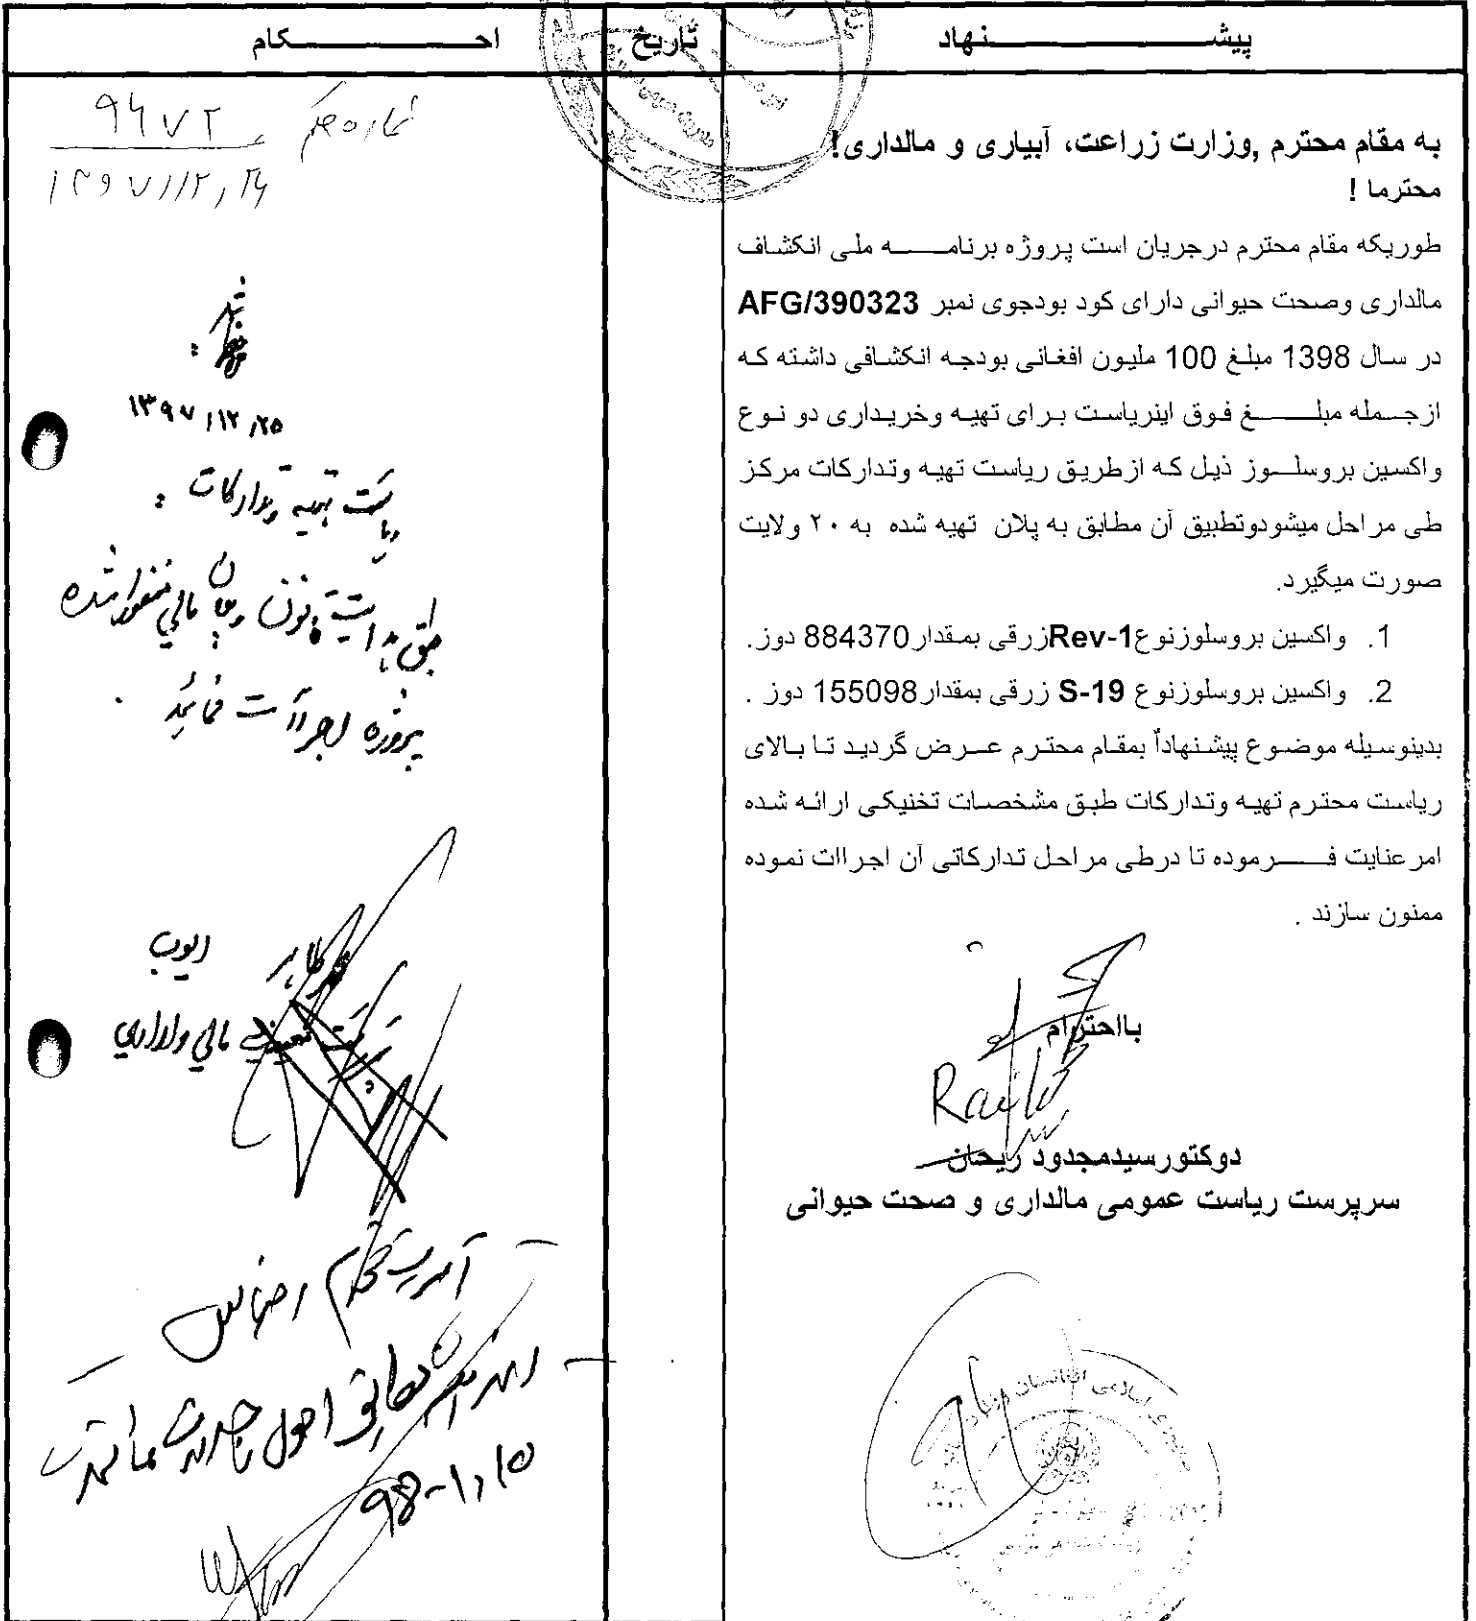 پیشـــــــنهاد
تاریخ
احـــــــکام
به مقام محترم ,وزارت زراعت، آبیاری و مالداری!
محترما !
طوریکه مقام محترم درجریان است پروژه برنامـــه ملی انکشاف
مالداری وصحت حیوانی دارای کود بودجوی نمبر AFG/390323
در سال 1398 مبلغ 100 ملیون افغانی بودجه انکشافی داشته که
ازجمله مبلـــغ فوق اینریاست برای تهیه وخریداری دو نوع
واکسین بروسلـوز ذیل که ازطریق ریاست تهیه وتدارکات مرکز
طی مراحل میشودوتطبیق آن مطابق به پلان تهیه شده به ۲۰ ولایت
صورت میگیرد.
1. واکسین بروسلوزنوعRev-1زرقی بمقدار884370 دوز.
2. واکسین بروسلوزنوع S-19 زرقی بمقدار155098 دوز .
بدینوسیله موضوع پیشنهاداً بمقام محترم عـرض گردید تا بالای
ریاست محترم تهیه وتدارکات طبق مشخصات تخنیکی ارائه شده
امرعنایت فـــرموده تا درطی مراحل تدارکاتی آن اجراات نموده
ممنون سازند .
بااحترام
دوکتورسیدمجدود ریحان
سرپرست ریاست عمومی مالداری و صحت حیوانی
۱۳۹۷/۱۲/۲۵
ریاست تهیه وتدارکات :
طبق هدایت قانون منظور شده
پروژه اجراآت نمائید .
محمد طاهر ایوب
مالی واداری
98-1,10